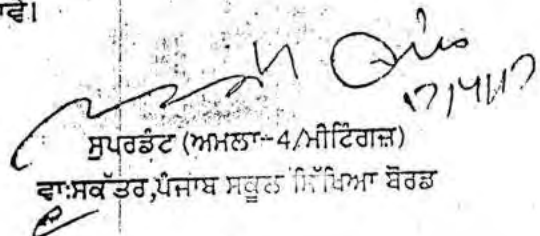 ਜਾਵੇ।
17/4/17
ਸੁਪਰਡੰਟ (ਅਮਲਾ-4/ਮੀਟਿੰਗਜ਼)
ਵਾ:ਸਕੱਤਰ,ਪੰਜਾਬ ਸਕੂਲ ਸਿੱਖਿਆ ਬੋਰਡ